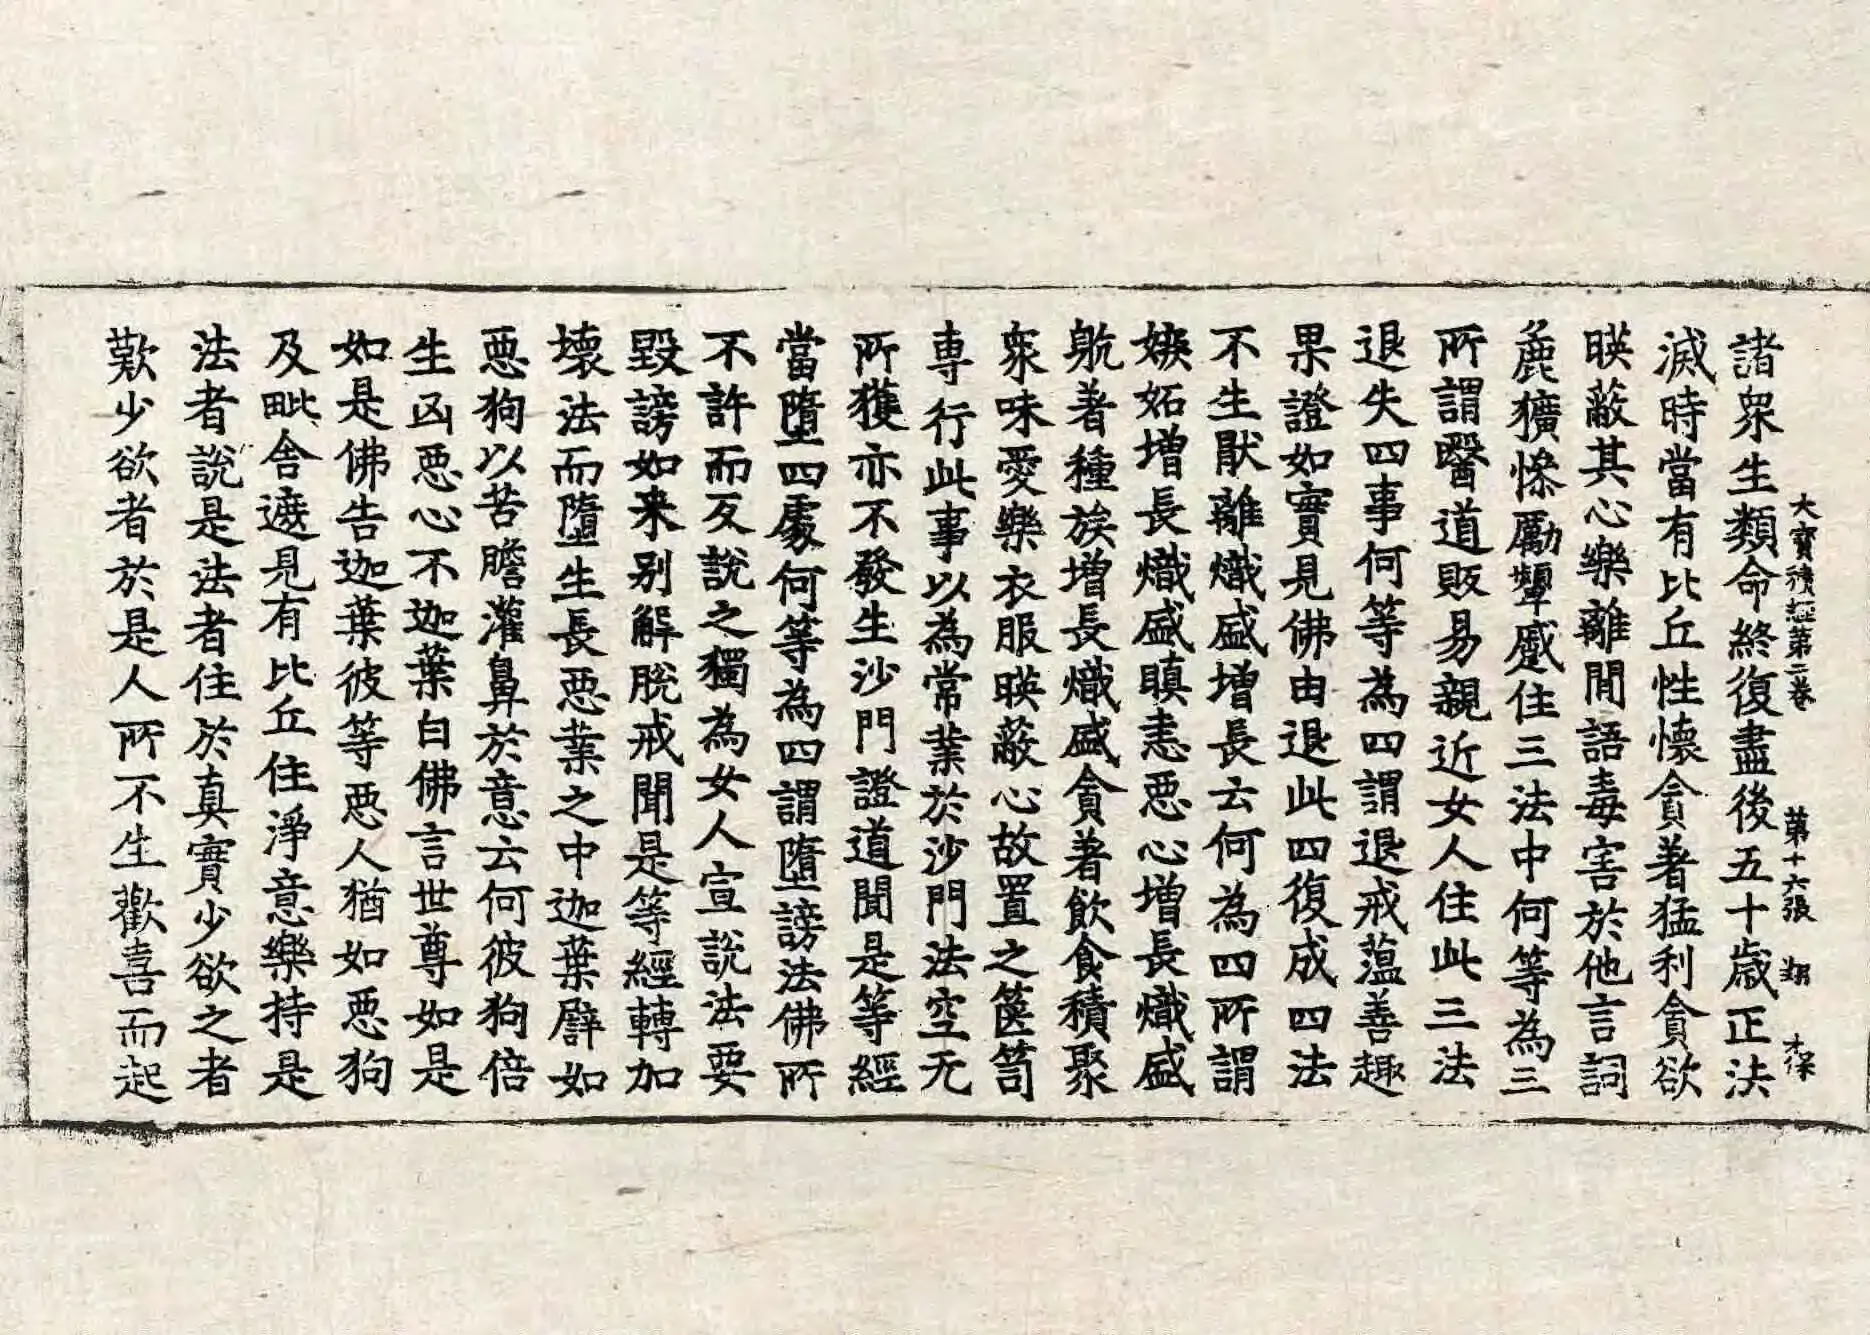 大寶積經第二卷 第十六張 翔
諸衆生類命終復盡後五十歲正法
滅時當有比丘性懷貪著猛利貪欲
暎蔽其心樂離間語毒害於他言詞
麁獷慘勵顰蹙住三法中何等為三
所謂醫道販易親近女人住此三法
退失四事何等為四謂退戒蕰善趣
果證如實見佛由退此四復成四法
不生猒離熾盛增長云何為四所謂
嫉妬增長熾盛瞋恚惡心增長熾盛
躭著種族增長熾盛貪著飲食積聚
衆味愛樂衣服暎蔽心故置之篋笥
專行此事以為常業於沙門法空无
所獲亦不發生沙門證道聞是等經
當墮四處何等為四謂墮謗法佛所
不許而反說之獨為女人宣說法要
毀謗如来别解脫戒聞是等經轉加
壞法而墮生長惡業之中迦葉譬如
惡狗以苦膽灌鼻於意云何彼狗倍
生凶惡心不迦葉白佛言世尊如是
如是佛告迦葉彼等惡人猶如惡狗
及毗舍遮見有比丘住淨意樂持是
法者說是法者住於真實少欲之者
歎少欲者於是人所不生歡喜而起